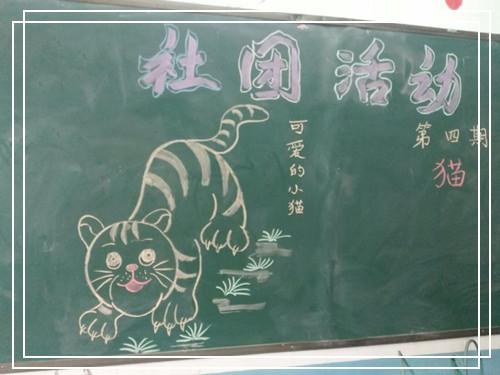 社团活动
第四期
猫
可爱的小猫